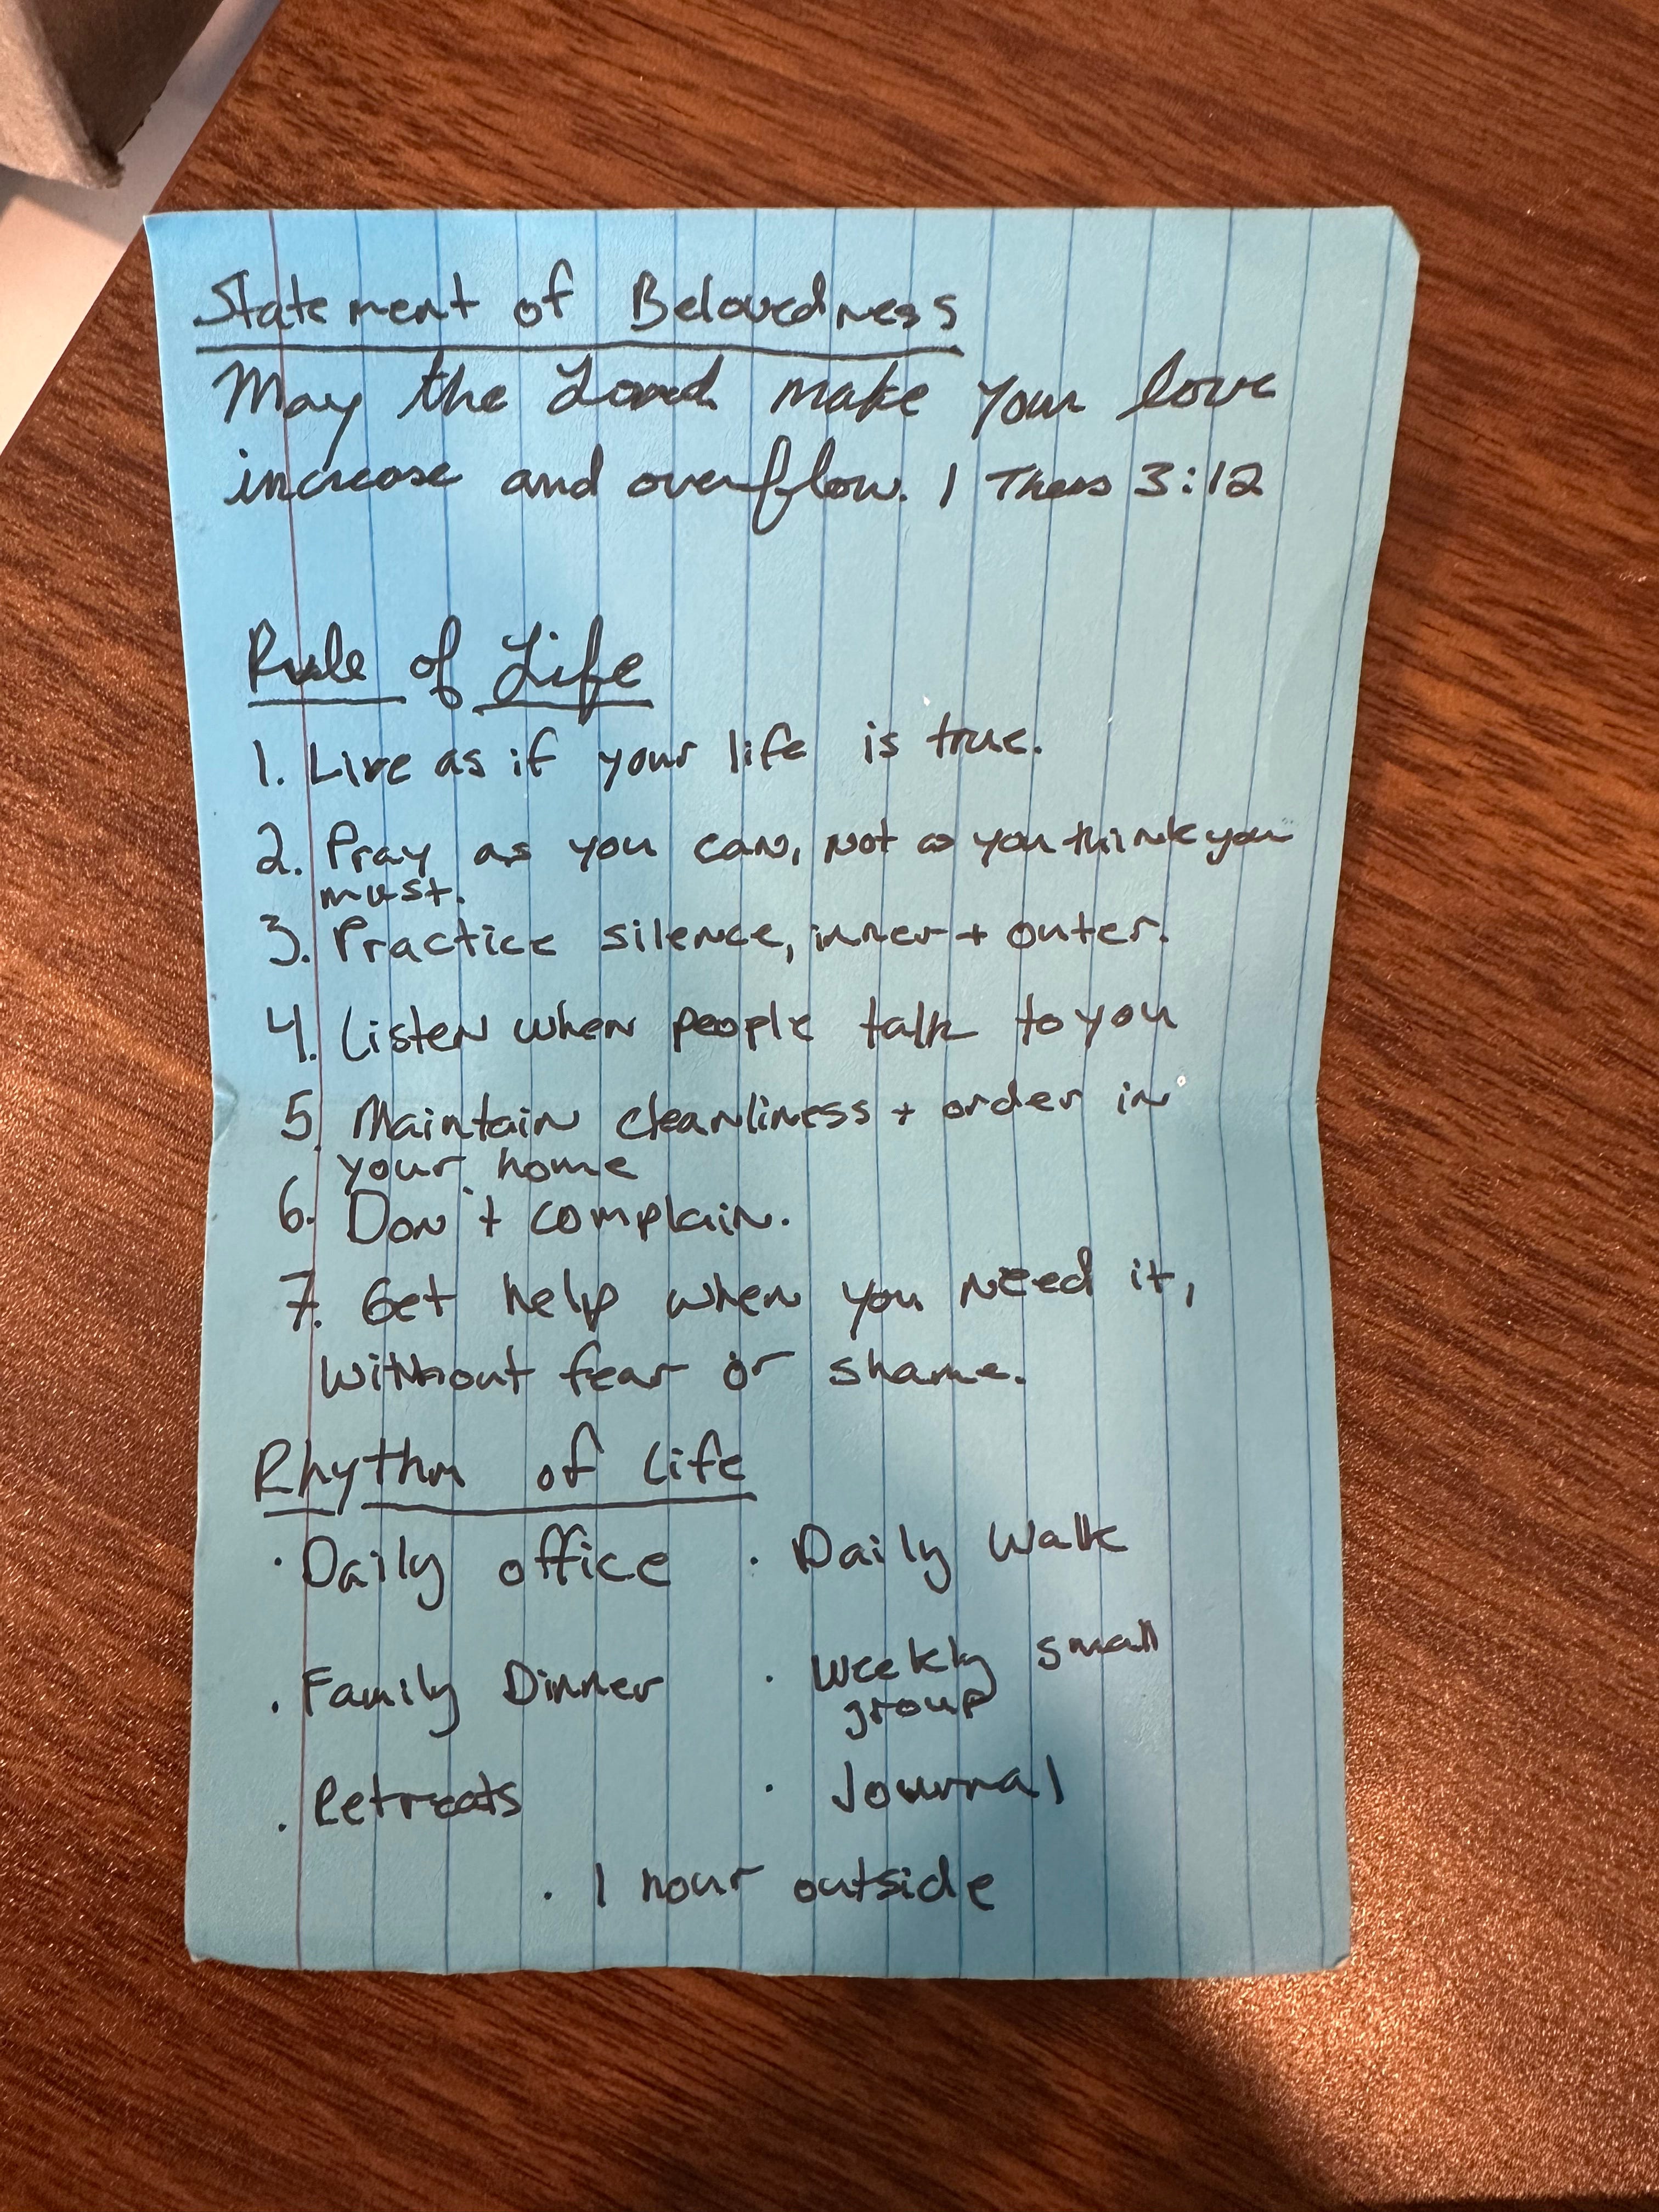 Statement of Belovedness
May the Lord make your love
increase and overflow. 1 Thess 3:12
Rule of Life
1. Live as if your life is true.
2. Pray as you can, not as you think you
must.
3. Practice silence, inner + outer.
4. Listen when people talk to you
5. Maintain cleanliness + order in
your home
6. Don't complain.
7. Get help when you need it,
without fear or shame.
Rhythm of Life
· Daily office · Daily Walk
· Family Dinner · Weekly small
group
· Retreats · Journal
· 1 hour outside